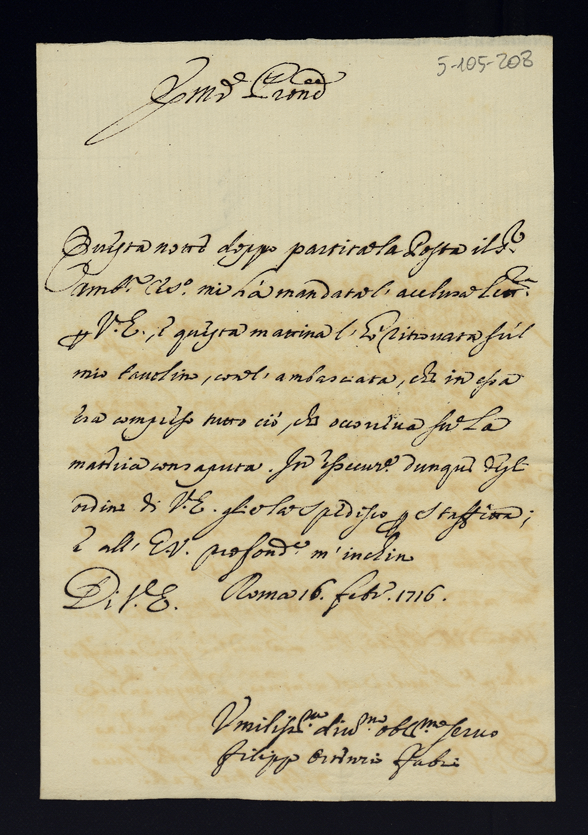 5-105-208
Em.° Prone
Questa notte doppo partita la Posta il S.r
Camb.e Ces.o mi hà mandata l'acclusa lett.ra
p V.E., e questa mattina l'hò ritrovata sul
mio tavolin, con l'ambasciata, che in essa
era compreso tutto ciò, che occorreva su La
materia consaputa. In essecuz.e dunque degl
ordini di V.E. glie la spedisco p Staffetta;
e all' E.V. profond.e m'inchin
Di V.E. Roma 16. febr. 1716.
Umiliss.mo div.mo obl.mo servo
Filippo Fabri